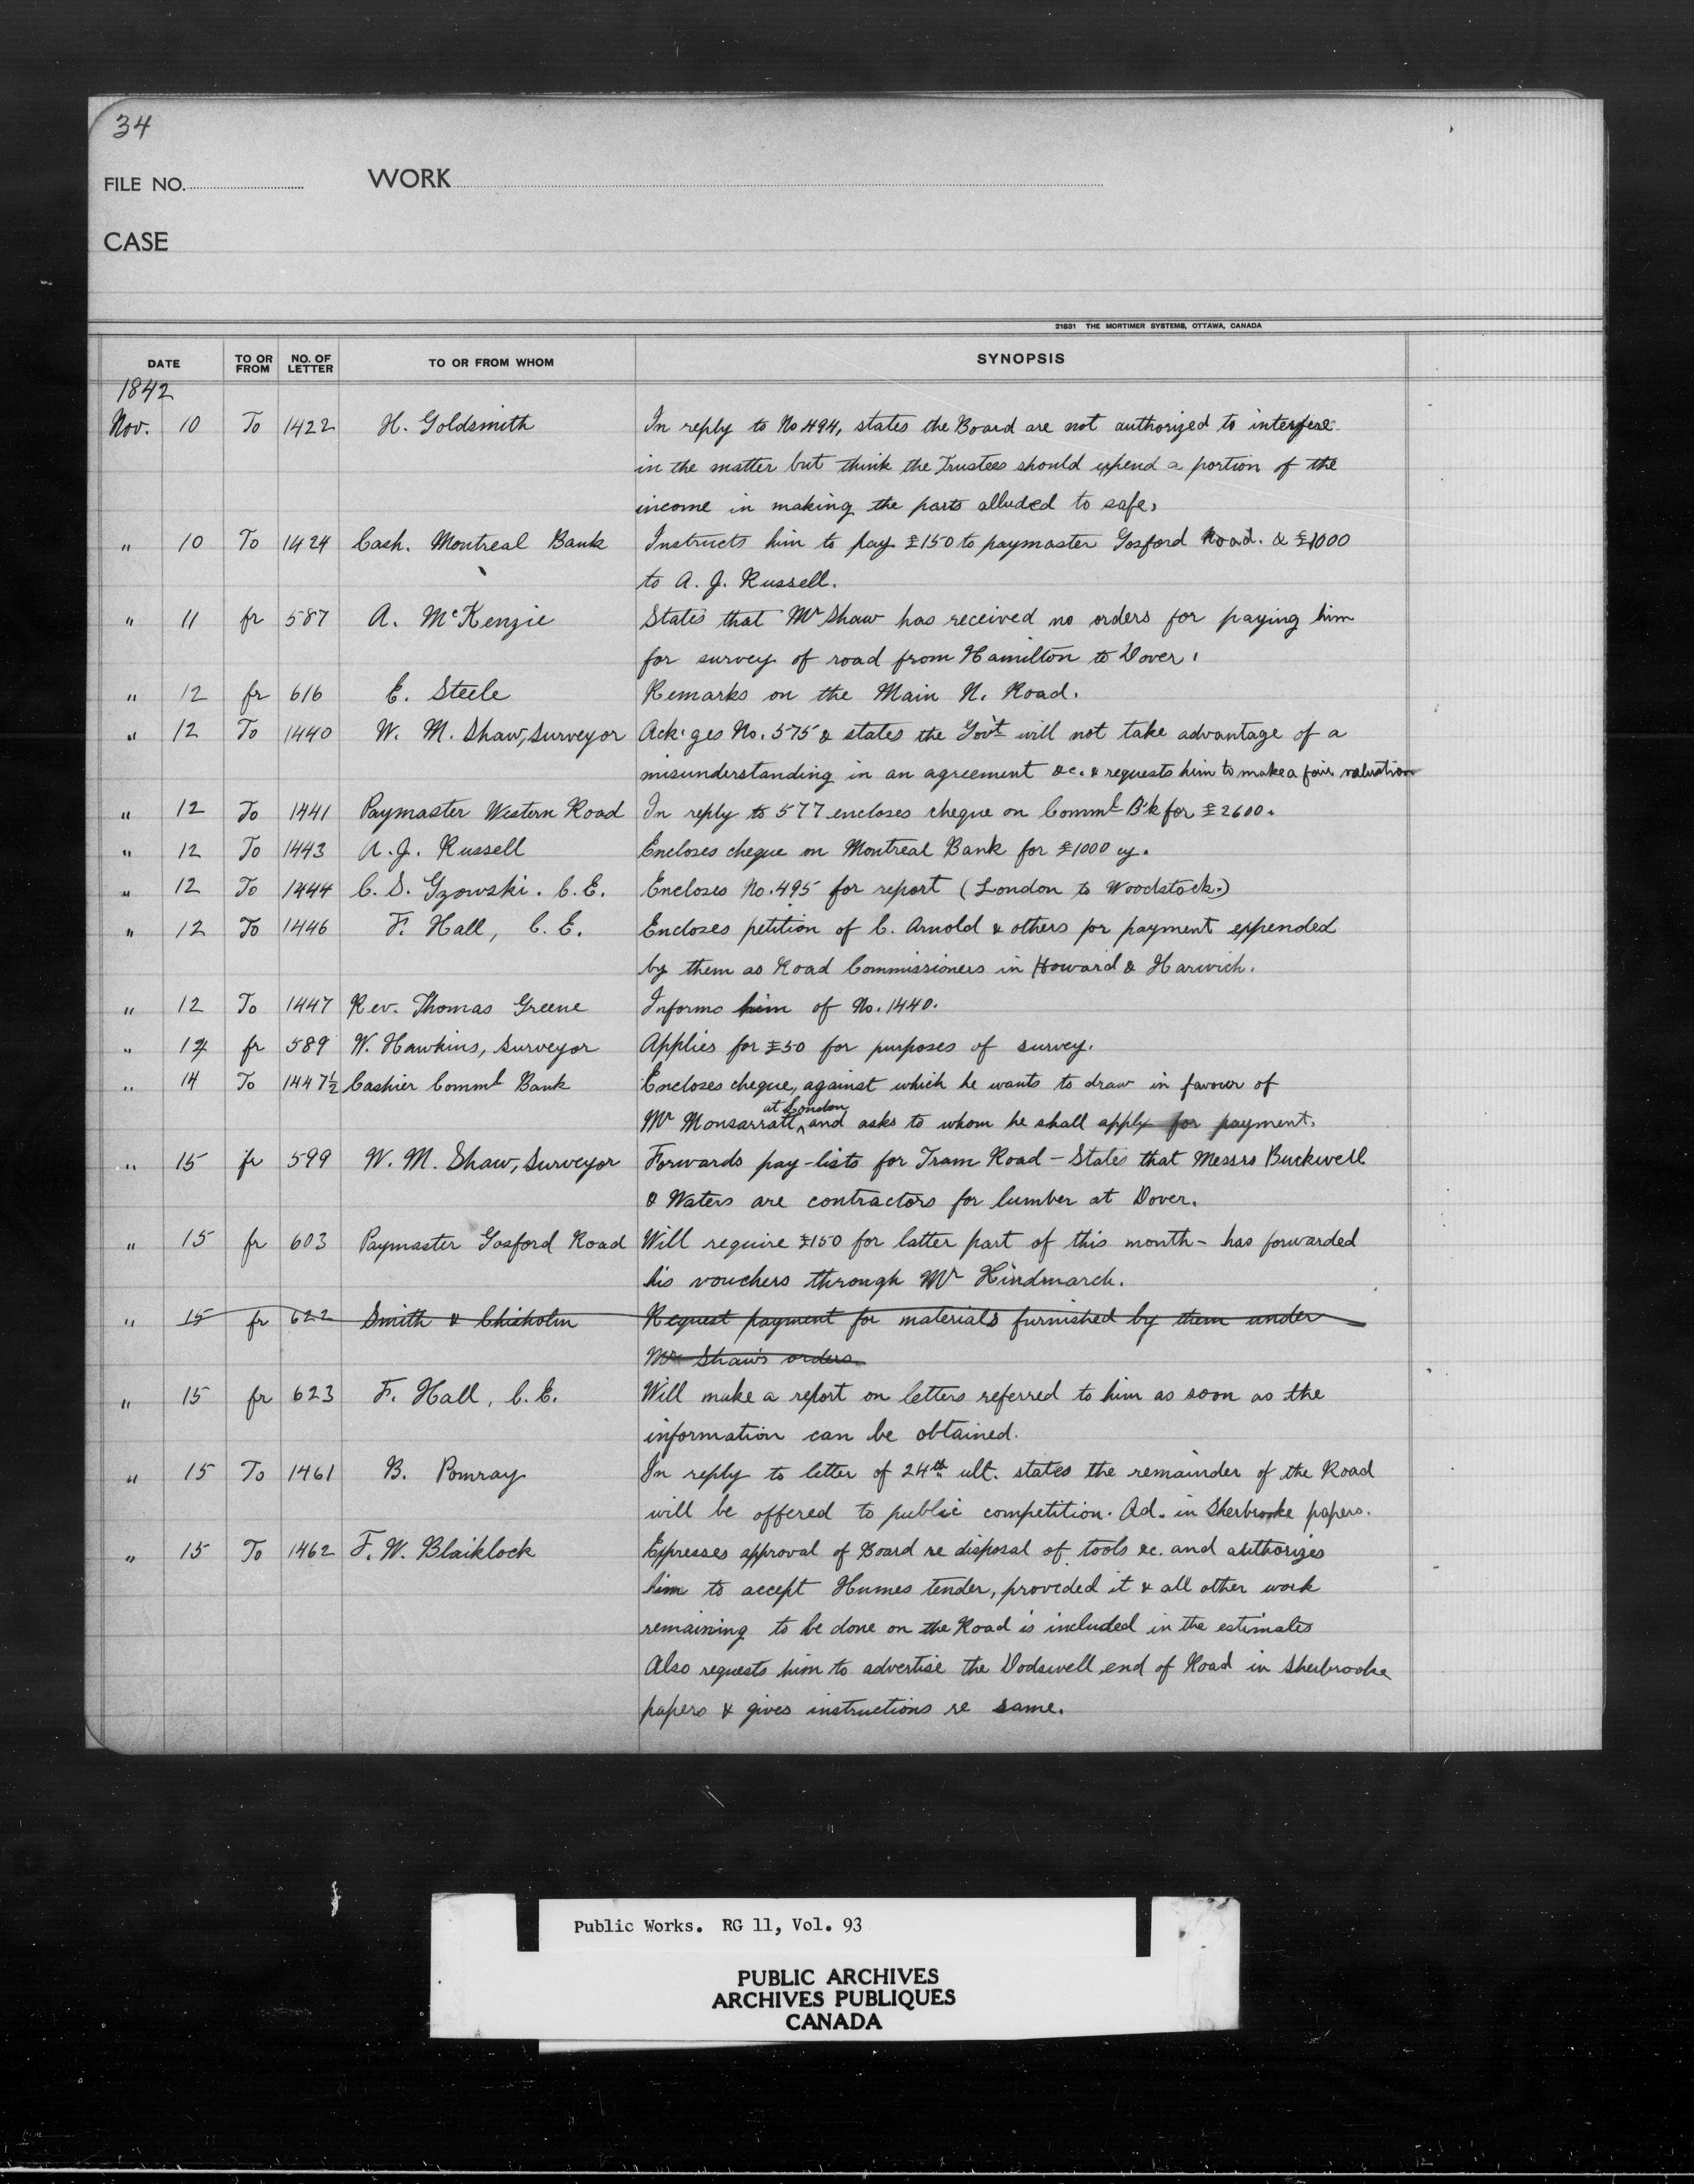 34
FILE NO. WORK
CASE
21831 THE MORTIMER SYSTEMS, OTTAWA, CANADA
DATE TO OR FROM NO. OF LETTER TO OR FROM WHOM SYNOPSIS
1842
Nov. 10 To 1422 H. Goldsmith In reply to No 494, states the Board are not authorized to interfere
in the matter but think the Trustees should expend a portion of the
income in making the parts alluded to safe,
" 10 To 1424 Cash. Montreal Bank Instructs him to pay £150 to paymaster Gosford Road. & £1000
to A. J. Russell.
" 11 fr 587 A. McKenzie States that Mr Shaw has received no orders for paying him
for survey of road from Hamilton to Dover.
" 12 fr 616 E. Steele Remarks on the Main N. Road.
" 12 To 1440 W. M. Shaw, Surveyor Ack'ges No. 575 & states the Gov't will not take advantage of a
misunderstanding in an agreement &c. & requests him to make a fair valuation
" 12 To 1441 Paymaster Western Road In reply to 577 encloses cheque on Comml B'k for £2600.
" 12 To 1443 A. J. Russell Encloses cheque on Montreal Bank for £1000 cy.
" 12 To 1444 C. S. Gzowski. C.E. Encloses No. 495 for report (London to Woodstock.)
" 12 To 1446 F. Hall, C. E. Encloses petition of C. Arnold & others for payment expended
by them as Road Commissioners in Howard & Harwich.
" 12 To 1447 Rev. Thomas Greene Informs him of No. 1440.
" 14 fr 589 W. Hawkins, Surveyor Applies for £50 for purposes of survey.
" 14 To 1447½ Cashier Comml Bank Encloses cheque, against which he wants to draw in favour of
at London
Mr Monsarratt, ^ and asks to whom he shall apply for payment.
" 15 fr 599 W. M. Shaw, Surveyor Forwards pay-lists for Tram Road - States that Messrs Buckwell
& Waters are contractors for lumber at Dover.
" 15 fr 603 Paymaster Gosford Road Will require £150 for latter part of this month - has forwarded
his vouchers through Mr Hindmarch.
" 15 fr 622 Smith & Chisholm Request payment for materials furnished by them under
Mr Shaw's orders
" 15 fr 623 F. Hall, C.E. Will make a report on letters referred to him as soon as the
information can be obtained.
" 15 To 1461 B. Pomray In reply to letter of 24th ult. states the remainder of the Road
will be offered to public competition. Ad. in Sherbrooke papers.
" 15 To 1462 F. W. Blaiklock Expresses approval of Board re disposal of tools &c. and authorizes
him to accept Humes tender, provided it & all other work
remaining to be done on the Road is included in the estimates
Also requests him to advertise the Dodswell end of Road in Sherbrooke
papers & gives instructions re same.
Public Works. RG 11, Vol. 93
PUBLIC ARCHIVES
ARCHIVES PUBLIQUES
CANADA